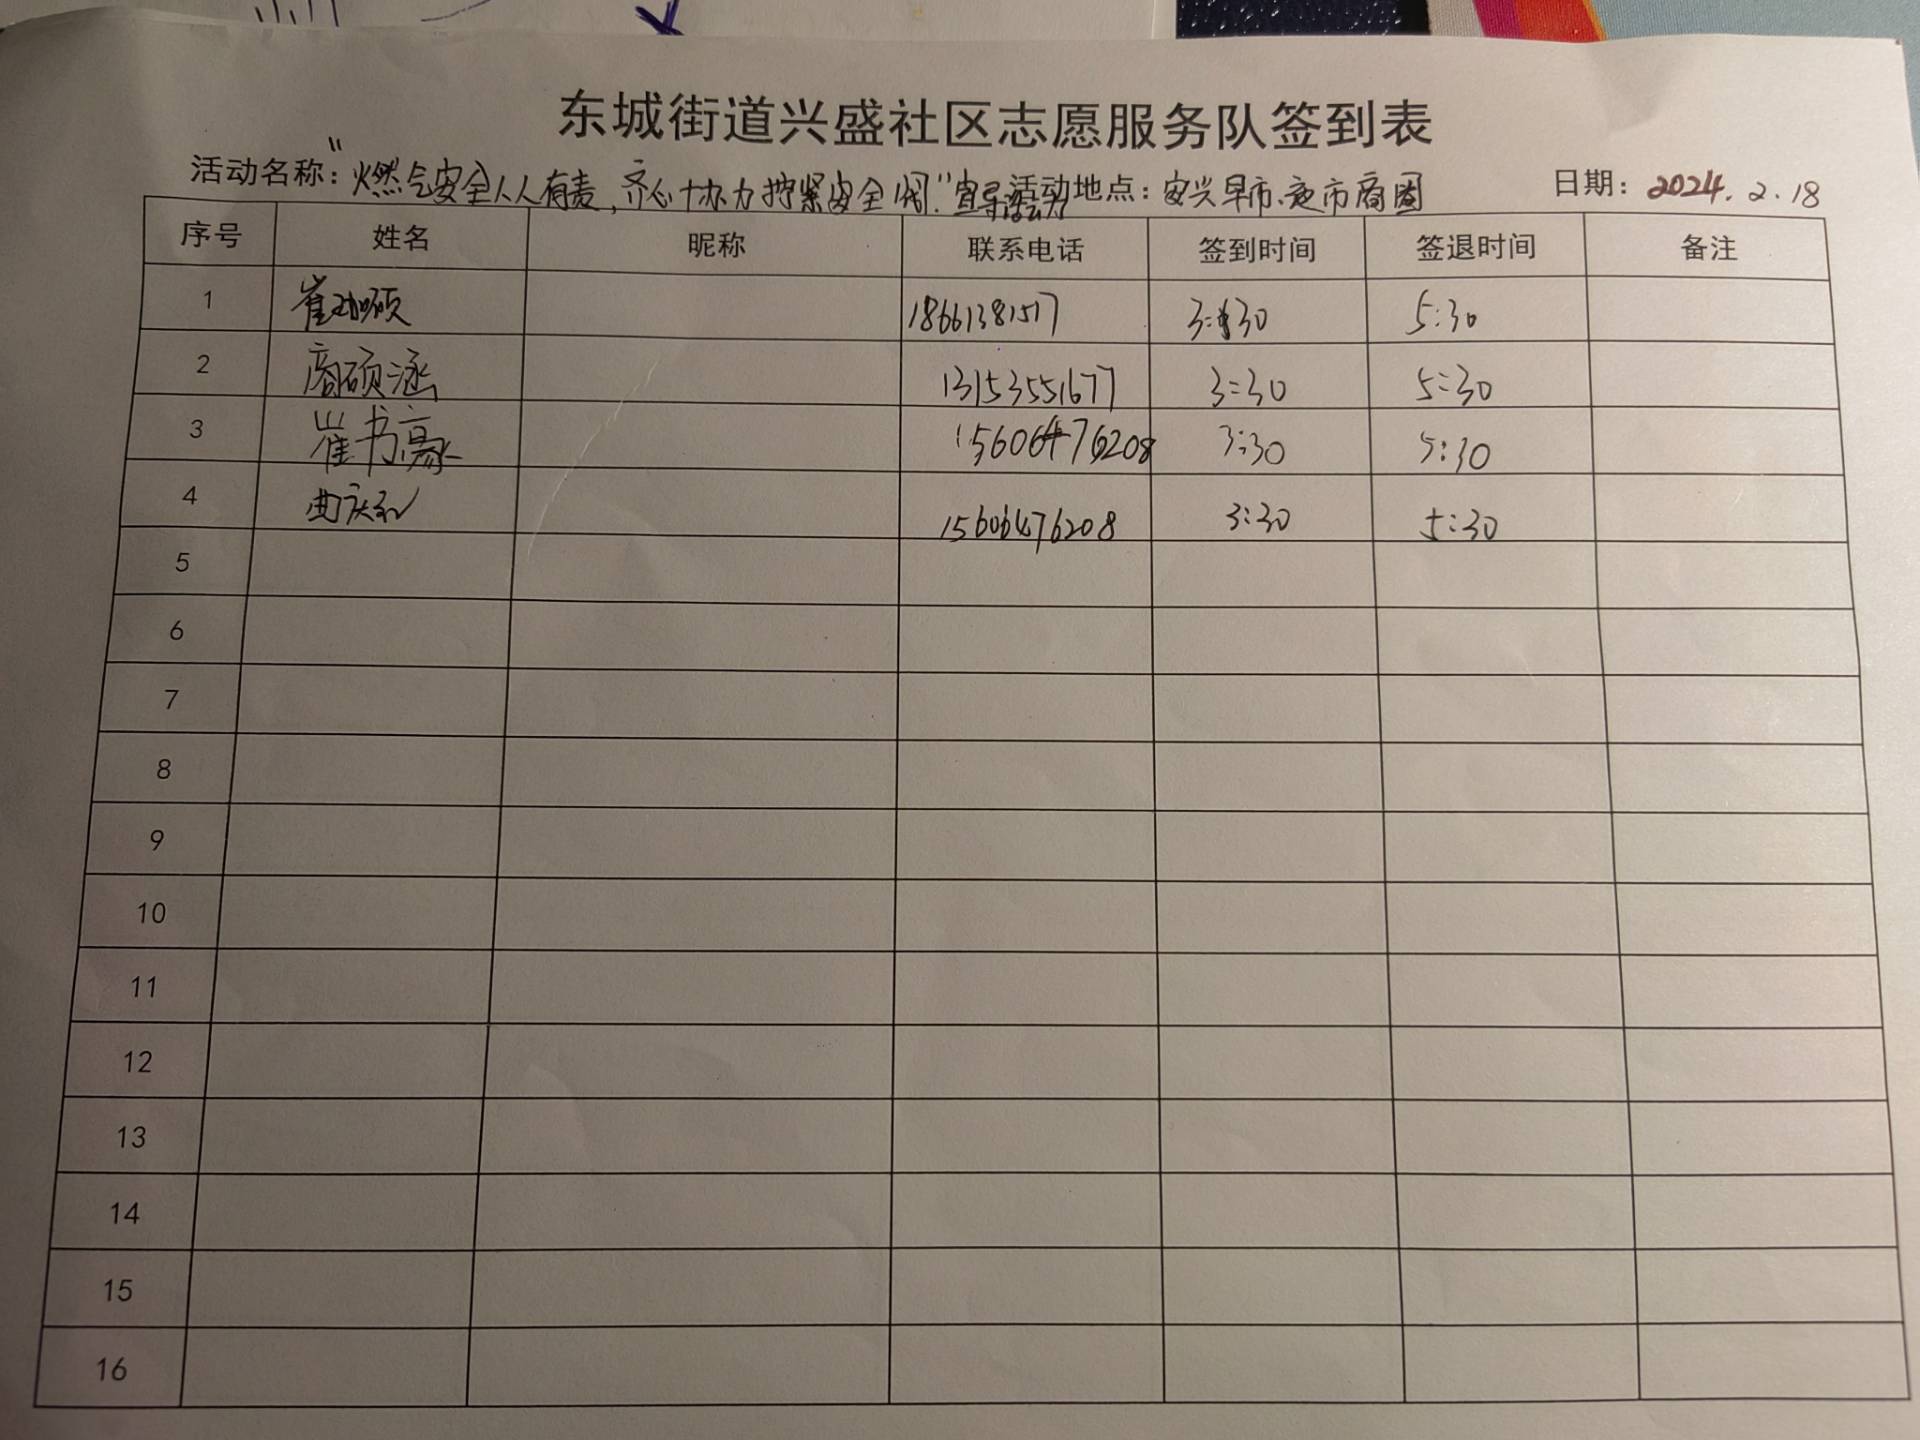 东城街道兴盛社区志愿服务队签到表
活动名称：“燃气安全人人有责，齐心协力拧紧安全阀”宣导活动 活动地点：安兴早市、夜市商圈 日期：2024.2.18
序号 姓名 昵称 联系电话 签到时间 签退时间 备注
1 崔 硕 18661381517 3:30 5:30
2 商硕涵 13153551677 3:30 5:30
3 崔书豪 15606476208 3:30 5:30
4 曲庆和 15606476208 3:30 5:30
5
6
7
8
9
10
11
12
13
14
15
16